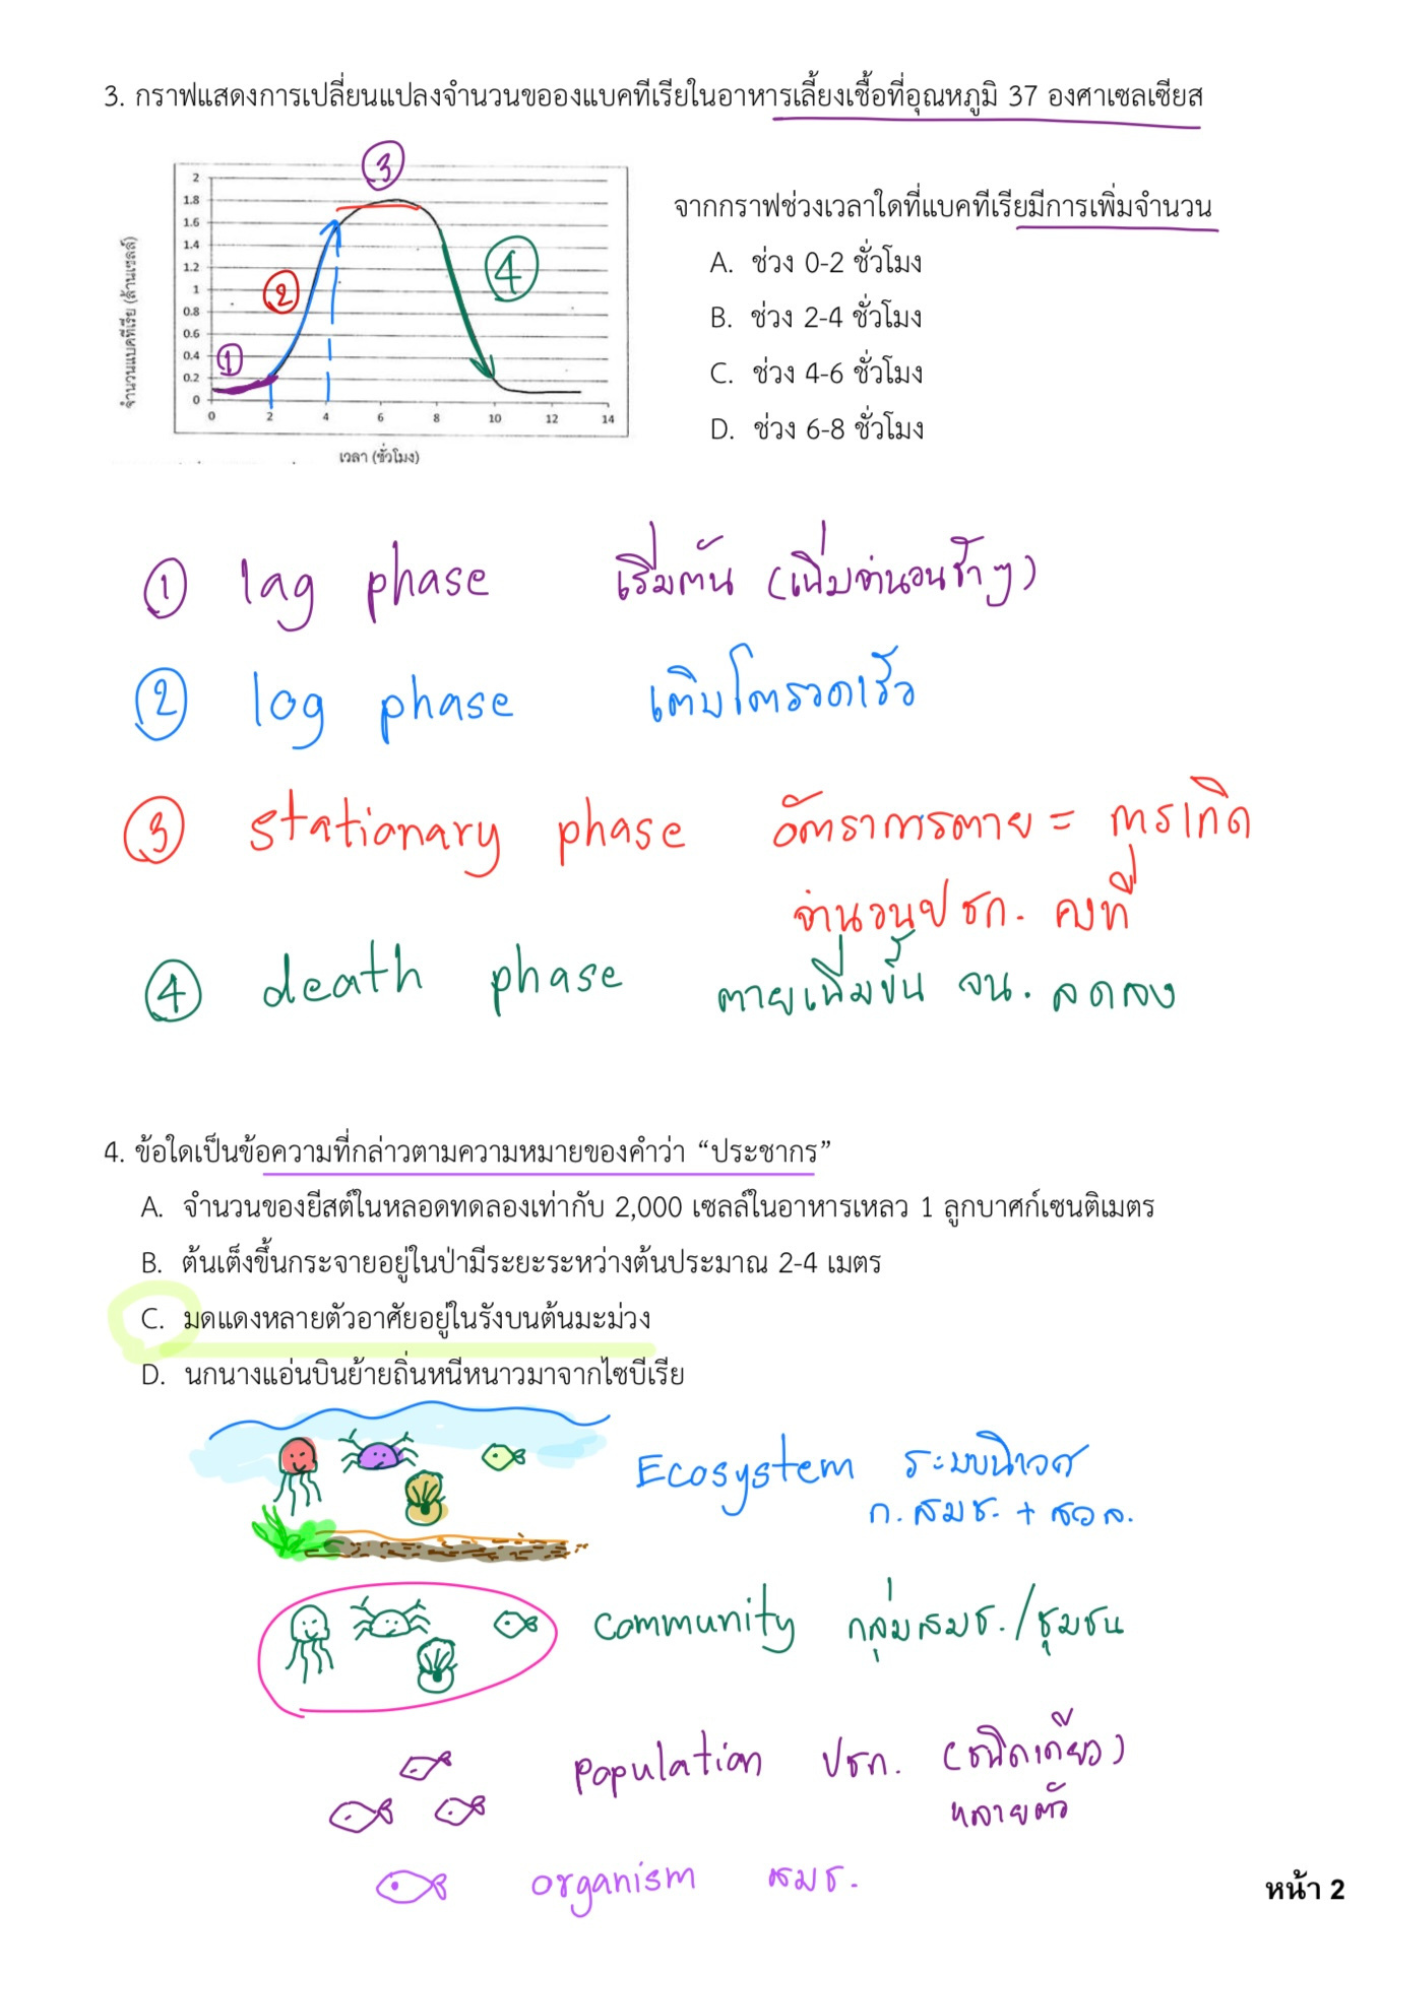 3. กราฟแสดงการเปลี่ยนแปลงจำนวนขอองแบคทีเรียในอาหารเลี้ยงเชื้อที่อุณหภูมิ 37 องศาเซลเซียส
3
2
1.8
1.6
1.4
1.2
1
0.8
0.6
0.4
0.2
0
จำนวนแบคทีเรีย (ล้านเซลล์)
1
2
4
0 2 4 6 8 10 12 14
เวลา (ชั่วโมง)
จากกราฟช่วงเวลาใดที่แบคทีเรียมีการเพิ่มจำนวน
A. ช่วง 0-2 ชั่วโมง
B. ช่วง 2-4 ชั่วโมง
C. ช่วง 4-6 ชั่วโมง
D. ช่วง 6-8 ชั่วโมง
1 lag phase เริ่มต้น (เพิ่มจำนวนช้าๆ)
2 log phase เติบโตรวดเร็ว
3 stationary phase อัตราการตาย = การเกิด
จำนวนปชก. คงที่
4 death phase ตายเพิ่มขึ้น จน. ลดลง
4. ข้อใดเป็นข้อความที่กล่าวตามความหมายของคำว่า “ประชากร”
A. จำนวนของยีสต์ในหลอดทดลองเท่ากับ 2,000 เซลล์ในอาหารเหลว 1 ลูกบาศก์เซนติเมตร
B. ต้นเต็งขึ้นกระจายอยู่ในป่ามีระยะระหว่างต้นประมาณ 2-4 เมตร
C. มดแดงหลายตัวอาศัยอยู่ในรังบนต้นมะม่วง
D. นกนางแอ่นบินย้ายถิ่นหนีหนาวมาจากไซบีเรีย
Ecosystem ระบบนิเวศ
ก. สมช. + สวล.
community กลุ่มสมช. / ชุมชน
population ปชก. (ชนิดเดียว)
หลายตัว
organism สมช.
หน้า 2